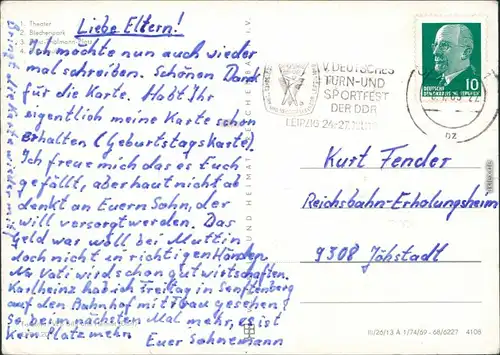 1. Theater
2. Blechenpark
Liebe Eltern!
Ich möchte nun auch wieder
mal schreiben. Schönen Dank
für die Karte. Habt Ihr
eigentlich meine Karte schon
erhalten (Geburtstagskarte)
Ich freue mich das es Euch
gefällt, aber haut nicht ab
denkt an Euern Sohn, der
will versorgt werden. Das
Geld war woll bei Muttin
doch nicht in richtigen Händen.
Na Vati wird schon gut wirtschaften.
Karlheinz hab ich Freitag in Senftenberg
auf den Bahnhof mit Frau gesehen
So beim nächsten Mal mehr, es ist
kein Platz mehr
Euer Sohnemann
Bringt die Karte wieder mit
V. DEUTSCHES
TURN- UND
SPORTFEST
DER DDR
LEIPZIG 24.-27.
10
DEUTSCHE
DEMOKRATISCHE REPUBLIK
nz
Kurt Fender
Reichsbahn-Erholungsheim
9308 Jöhstadt
III/26/13 A 1/74/69 - 68/6227 4108